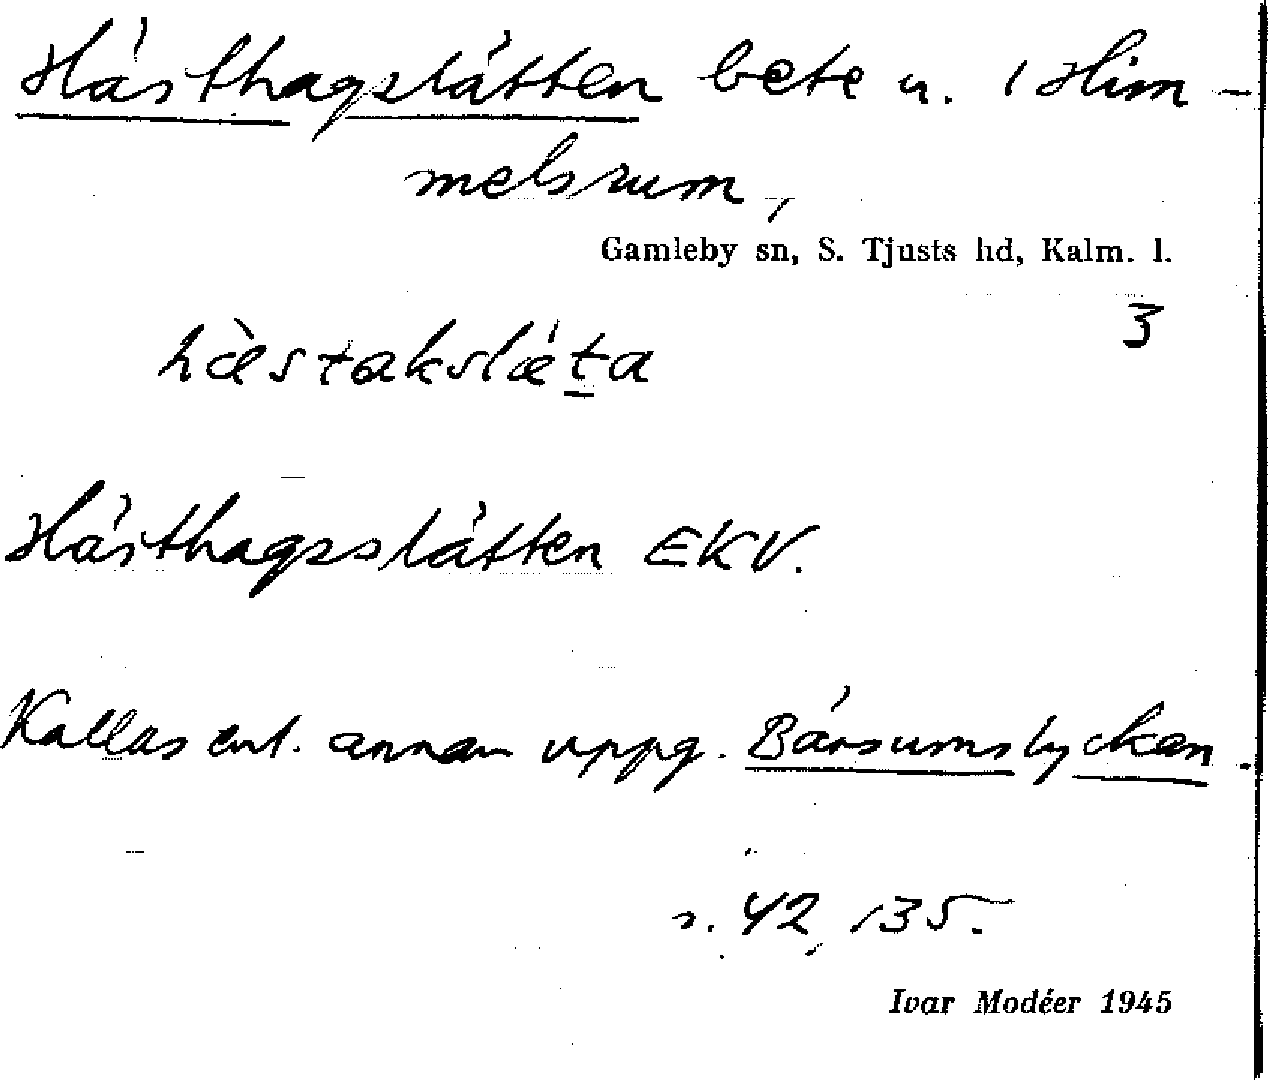 Hästhagslätten bete u. 1 Him-
melsrum,
Gamleby sn, S. Tjusts hd, Kalm. l.
3
hὰstakslǽta
Hästhagsslätten EKV.
Kallas enl. annan uppg. Bärsumslyckan.
s. 42, 135.
Ivar Modéer 1945